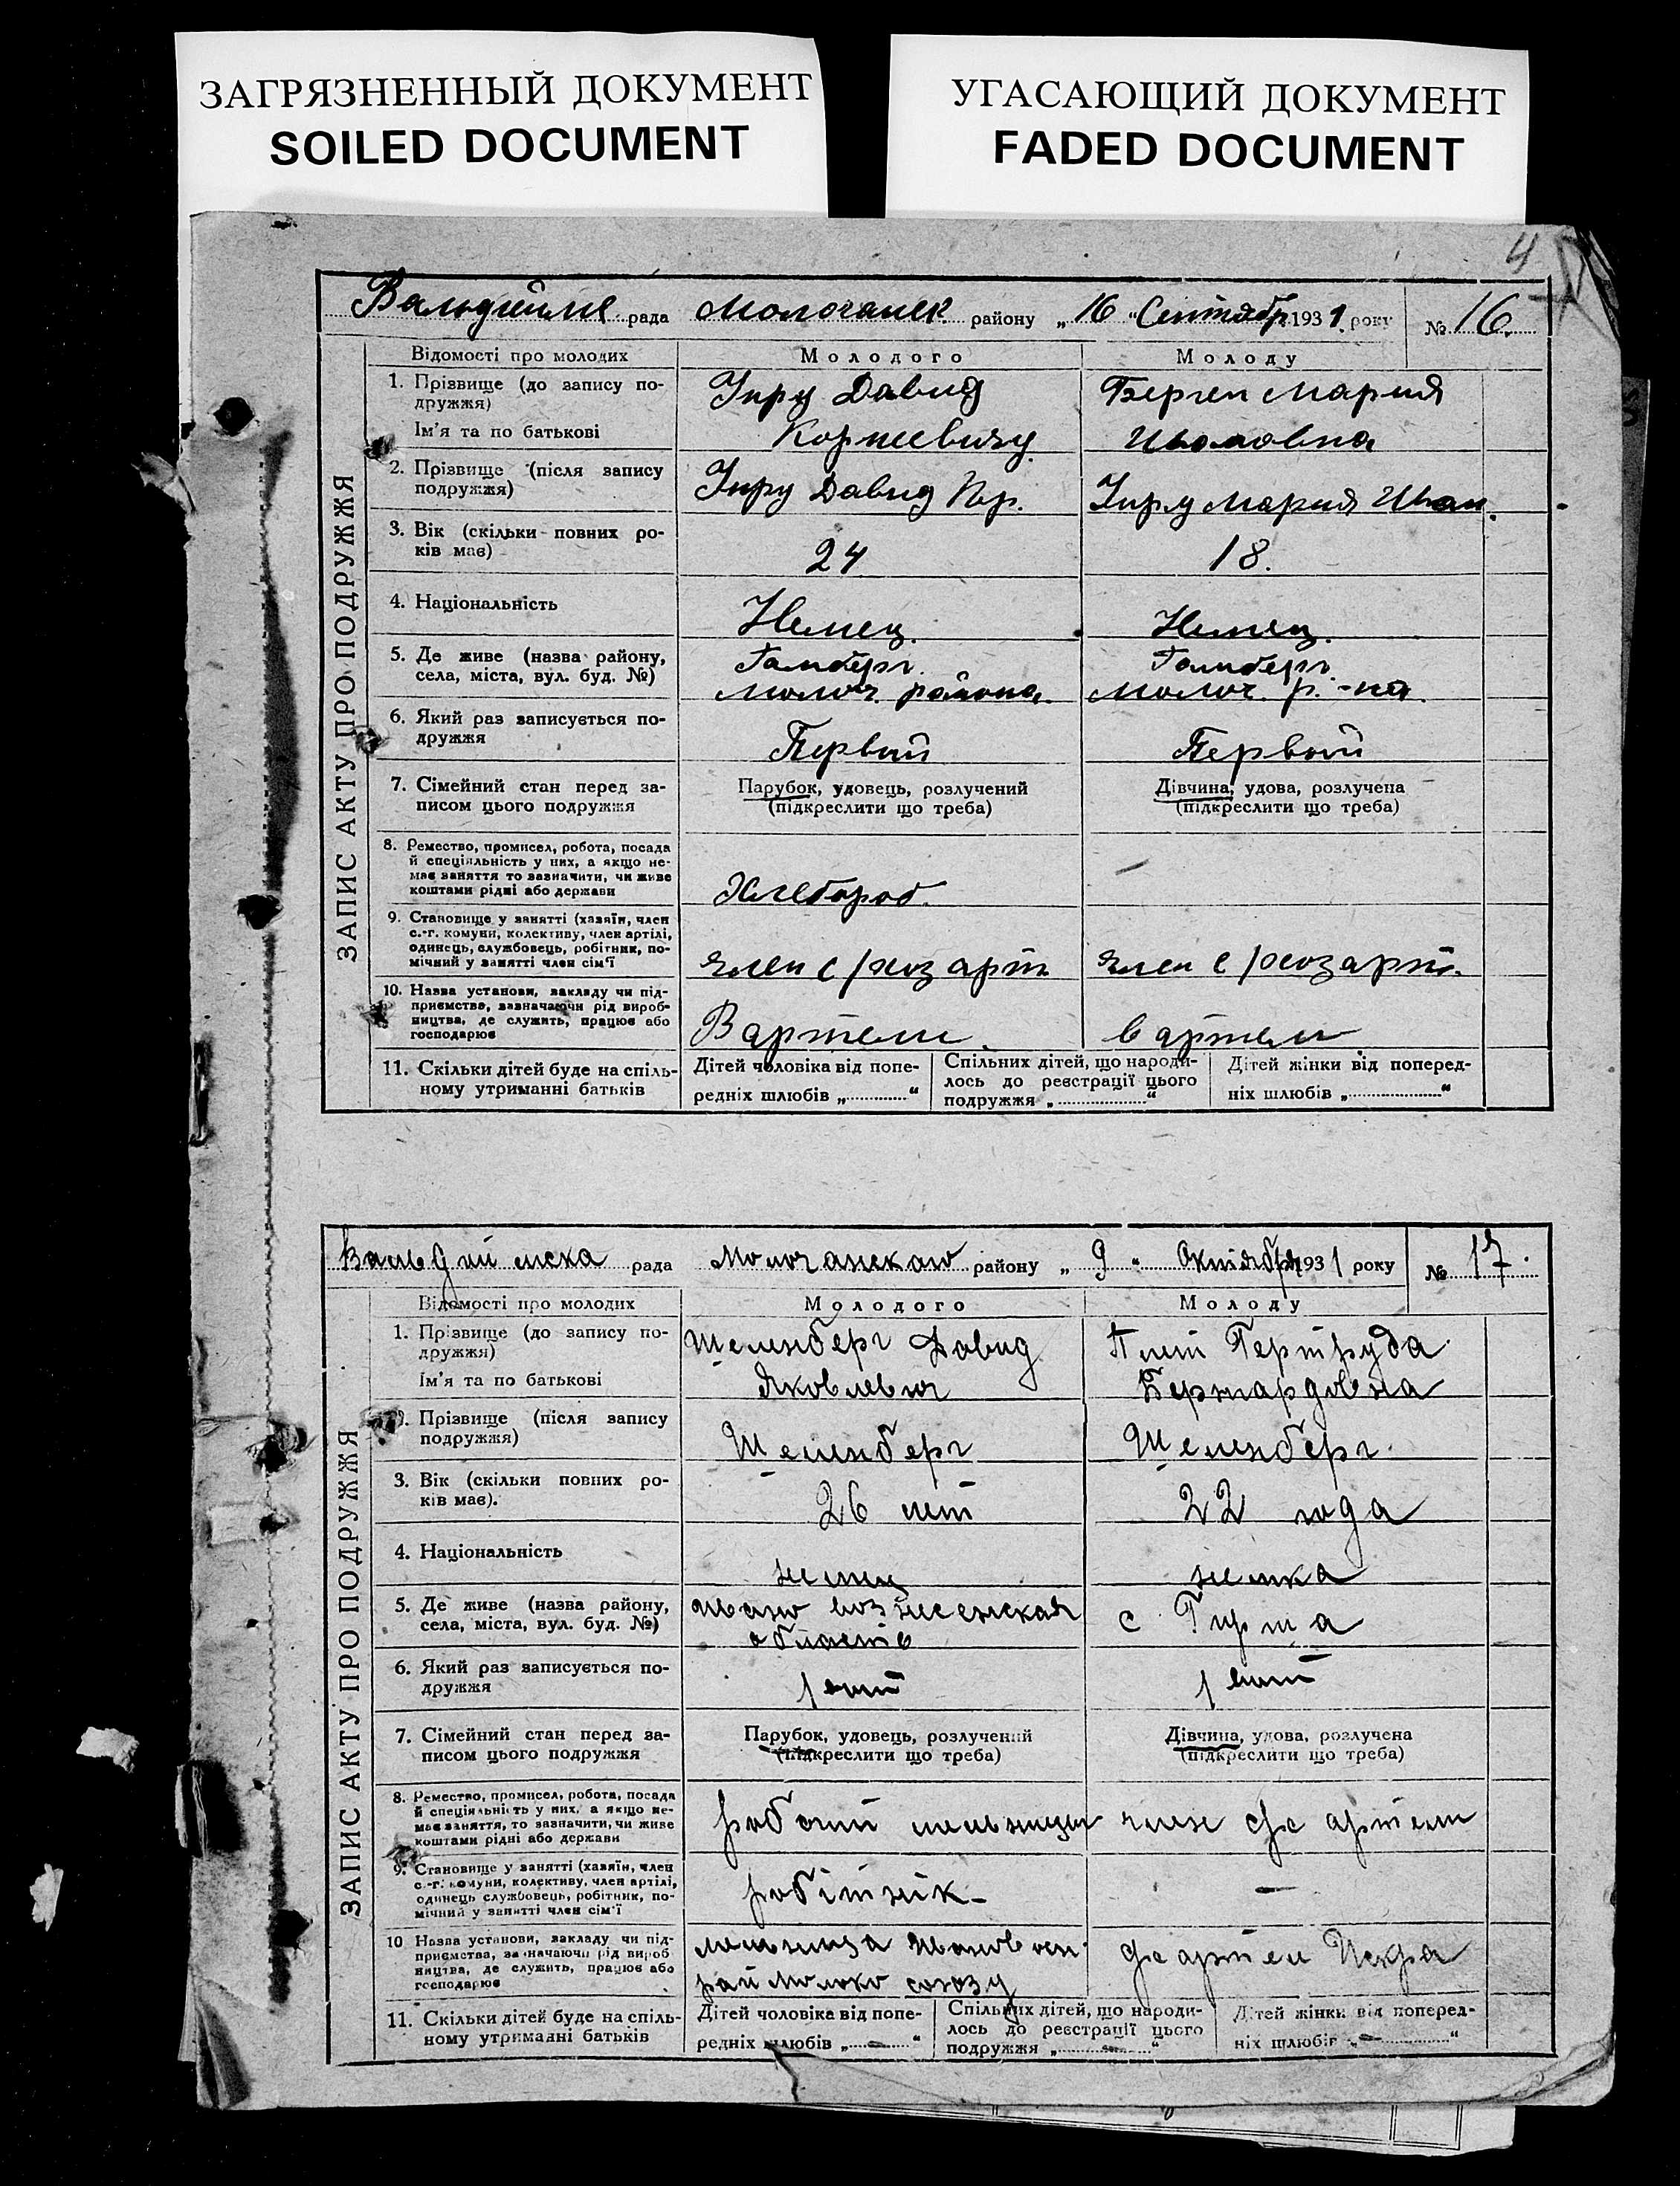 ЗАГРЯЗНЕННЫЙ ДОКУМЕНТ
SOILED DOCUMENT
УГАСАЮЩИЙ ДОКУМЕНТ
FADED DOCUMENT
4
рада Молочанск. району „16“ Сентября 1931 року № 16.
ЗАПИС АКТУ ПРО ПОДРУЖЖЯ
Відомості про молодих Молодого Молоду
1. Прізвище (до запису по-
дружжя)
Ім'я та по батькові
Давид
Берген Мария
2. Прізвище (після запису
подружжя)
Давид Кор.
Мария Иван.
3. Вік (скільки повних ро-
ків має)
24
18.
4. Національність
Немец.
Немец.
5. Де живе (назва району,
села, міста, вул. буд. №)
Гамберг.
Молоч. района.
Гамберг.
Молоч. р.-на.
6. Який раз записується по-
дружжя
Первый
Первый
7. Сімейний стан перед за-
писом цього подружжя
Парубок, удовець, розлучений
(підкреслити що треба)
Дівчина, удова, розлучена
(підкреслити що треба)
8. Ремество, промисел, робота, посада
й спеціяльність у них, а якщо не-
має заняття то зазначити, чи живе
коштами рідні або держави
Хлебороб.
—
9. Становище у занятті (хазяїн, член
с.-г. комуни, колективу, член артілі,
одинець, службовець, робітник, по-
мічний у занятті член сім'ї
член с/хоз арт
член с/хоз арт.
10. Назва установи, закладу чи під-
приємства, зазначаючи рід вироб-
ництва, де служить, працює або
господарює
В артели.
в артели
11. Скільки дітей буде на спіль-
ному утриманні батьків
Дітей чоловіка від попе-
редніх шлюбів „..........“
Спільних дітей, що народи-
лось до реєстрації цього
подружжя „..........“
Дітей жінки від поперед-
ніх шлюбів „..........“
рада Молочанского району „9“ Октября 1931 року № 17.
ЗАПИС АКТУ ПРО ПОДРУЖЖЯ
Відомості про молодих Молодого Молоду
1. Прізвище (до запису по-
дружжя)
Ім'я та по батькові
Шеленберг Давид
Яковлевич
Гертруда
Бернардовна
2. Прізвище (після запису
подружжя)
Шеленберг
Шеленберг
3. Вік (скільки повних ро-
ків має).
26 лет
22 года
4. Національність
немец
немка
5. Де живе (назва району,
села, міста, вул. буд. №)
Ивано вознесенская
область
с
6. Який раз записується по-
дружжя
1 вый
1 вый
7. Сімейний стан перед за-
писом цього подружжя
Парубок, удовець, розлучений
(підкреслити що треба)
Дівчина, удова, розлучена
(підкреслити що треба)
8. Ремество, промисел, робота, посада
й спеціяльність у них, а якщо не-
має заняття, то зазначити, чи живе
коштами рідні або держави
рабочий мельницы
член с/х артели
9. Становище у занятті (хазяїн, член
с.-г. комуни, колективу, член артілі,
одинець службовець, робітник, по-
мічний у занятті член сім'ї
робітнік-
—
10 Назва установи, закладу чи під-
приємства, зазначаючи рід вироб
ництва, де служить, працює або
господарює
мельница
рай молоко союзу
с/х артели Искра
11. Скільки дітей буде на спіль-
ному утриманні батьків
Дітей чоловіка від попе-
редніх шлюбів „—“
Спільних дітей, що народи-
лось до реєстрації цього
подружжя „—“
Дітей жінки від поперед-
ніх шлюбів „—“